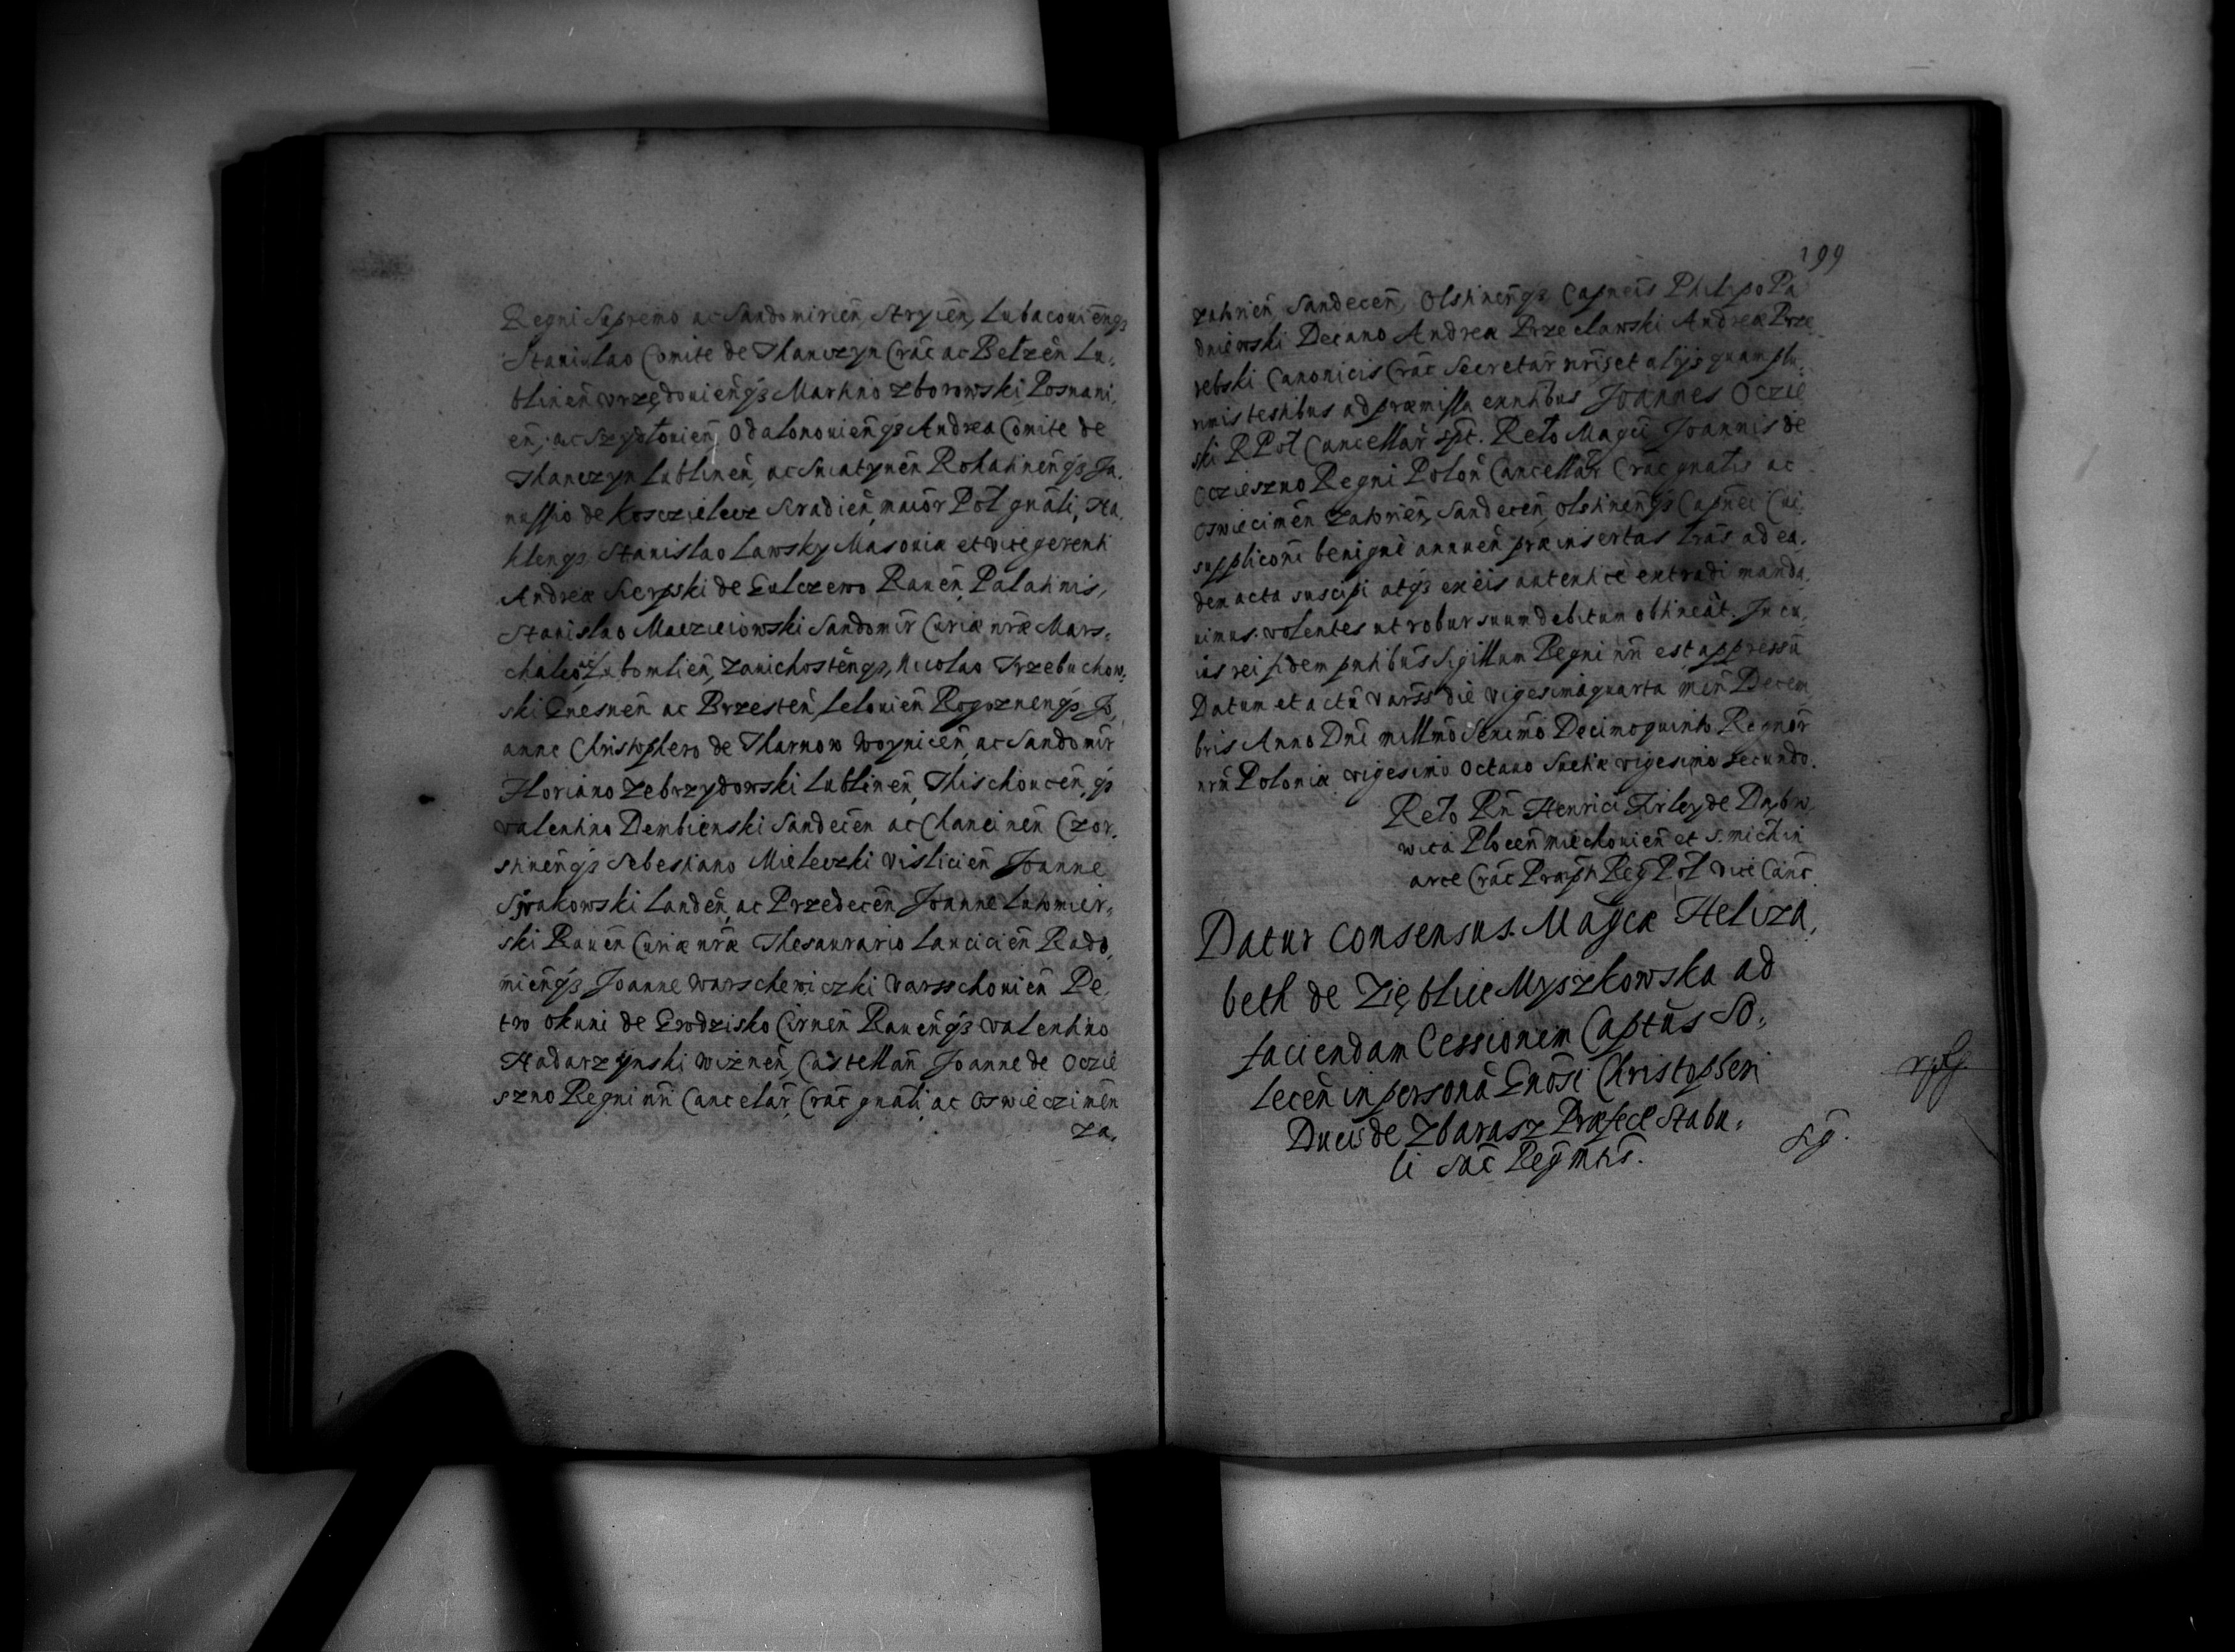 Regni Supremo ac Sandomirien̄, Stryień, Lubaconien̄qȝ
Stanislao Comite de Thanczyn Crac̄ ac Belzen̄ Lu,
blinen̄ vrzędouien̄qȝ Martino Zborowski Posnani,
en̄, ac Szydłouien̄, Odalonouien̄qȝ Andrea Comite de
Thanczyn Lublinen̄, ac Sniatynen̄ Rohatinen̄qȝ Ja,
nussio de Kosczielecz Siradien̄, maior̄ Pol̄ gnāli, Na,
klenqȝ Stanislao Lawsky Masouiæ et vicegerenti
Andreæ Sierpski de Gulczewo Rauen̄, Palatinis,
Stanislao Macziеiowski Sandomir̄ Curiæ nr̄æ Mars,
chalco, ac Lubomlien̄, Zauichosten̄qȝ, Nicolao Trzebuchow,
ski Gnesnen̄ ac Brzesten̄, Lelouien̄ Rogoznenqȝ Jo,
anne Christophero de Tharnow Woynicen̄, ac Sandomir̄
Floriano Zebrzydowski Lublinen̄, Thischouien̄, qȝ
Valentino Dembienski Sandecen̄ ac Chancinen̄ Czor,
stinen̄qȝ Sebestiano Mieleczki Vislicien̄ Joanne
Sjrakowski Landen̄, ac Przedecen̄ Joanne Lutomier,
ski Rauen̄ Curiæ nr̄æ Thesaurario Lancicien̄ Rado,
mien̄qȝ Joanne Warscheviczki Varsschouien̄ Pe,
tro Okuni de Grodzisko Cirnen̄ Rauen̄qȝ Valentino
Nadarzynski Wiznen̄, Castellan̄ Joanne de Oczie
szno Regni nr̄i Cancelar̄, Crac̄ gnāli, ac Oswieczimen̄
za,
199
zatorien̄, Sandecen̄, Olstinen̄qȝ Capneis Philipo Pa
dniewski Decano Andrea Przeclawski Andrea Prze
rebski Canonicis Crac̄ Secretar̄ nr̄is et alijs quam plu,
rimis testibus ad præmissa exntibus Joannes Oczie
ski R Pol̄ Cancellar̄ spt. Rel̄o Magci Joannis de
Oczieszno Regni Polon̄ Cancellar̄ Crac̄ gnalis ac
Oswiecimen̄ Zatorien̄, Sandecen̄, Olstinen̄qȝ Capnei Cui
suppliconi benigne annuen̄ præinsertas lrās ad ea,
dem acta suscipi atqȝ ex eis autentice extradi manda,
uimus. volentes ut robur suum debitum obtineāt. In cu,
ius rei fidem pntibus Sigillum Regni nr̄i est appressū
Datum et actū Varss̄ die vigesimaquarta men̄ Decem
bris Anno Dn̄i millmo sexcmo Decimoquinto Regnor̄
nr̄m Poloniæ vigesimo Octauo Suetiæ vigesimo Secundo.
Rel̄o Rn̄ Henrici Firley de Dąbro
wica Plocen̄ miechouien̄ et S. michin
arce Crac̄ Præpti Reg Pol̄ Vice Canc̄.
Datur consensus. Magcæ Heliza,
beth de Zięblice Myszkowska ad
faciendam Cessionem Captus So,
lecen̄ in personā Gnosi Christopheri
Ducis de Zbarasz Præfect Stabu,
li Sac̄ Reḡ mtis.
Sig.